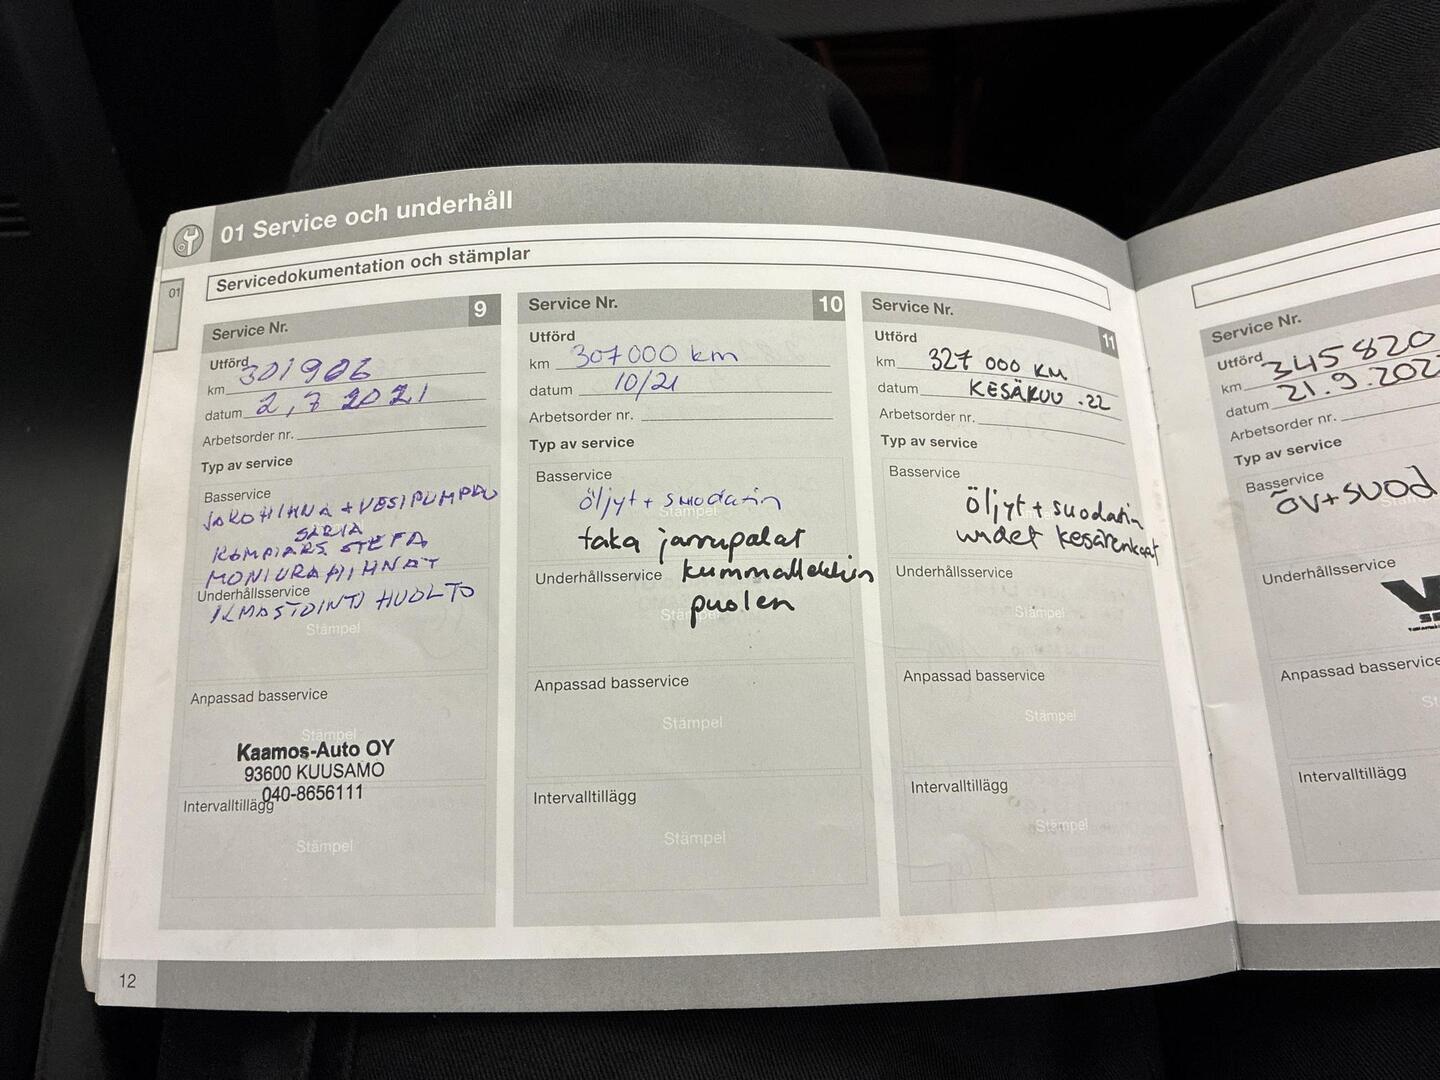 01 Service och underhåll
Servicedokumentation och stämplar
01
Service Nr. 9
Utförd
km 301906
datum 2,7 2021
Arbetsorder nr.
Typ av service
Basservice
JAKOHIHNA + VESIPUMPPU
SARJA
MONIURAHIHNAT
Underhållsservice
ILMASTOINTI HUOLTO
Stämpel
Anpassad basservice
Stämpel
Kaamos-Auto OY
93600 KUUSAMO
040-8656111
Intervalltillägg
Stämpel
Service Nr. 10
Utförd
km 307000 km
datum 10/21
Arbetsorder nr.
Typ av service
Basservice
öljyt + suodatin
Stämpel
taka jarrupalat
Underhållsservice kummallekkin
puolen
Stämpel
Anpassad basservice
Stämpel
Intervalltillägg
Stämpel
Service Nr. 11
Utförd
km 327 000 KM
datum KESÄKUU .22
Arbetsorder nr.
Typ av service
Basservice
öljyt + suodatin
uudet kesärenkaat
Underhållsservice
Stämpel
Anpassad basservice
Stämpel
Intervalltillägg
Stämpel
Service Nr.
Utförd
km 345 820
datum 21.9.202
Arbetsorder nr.
Typ av service
Basservice
öv+suod
Underhållsservice
Anpassad basservice
Intervalltillägg
12